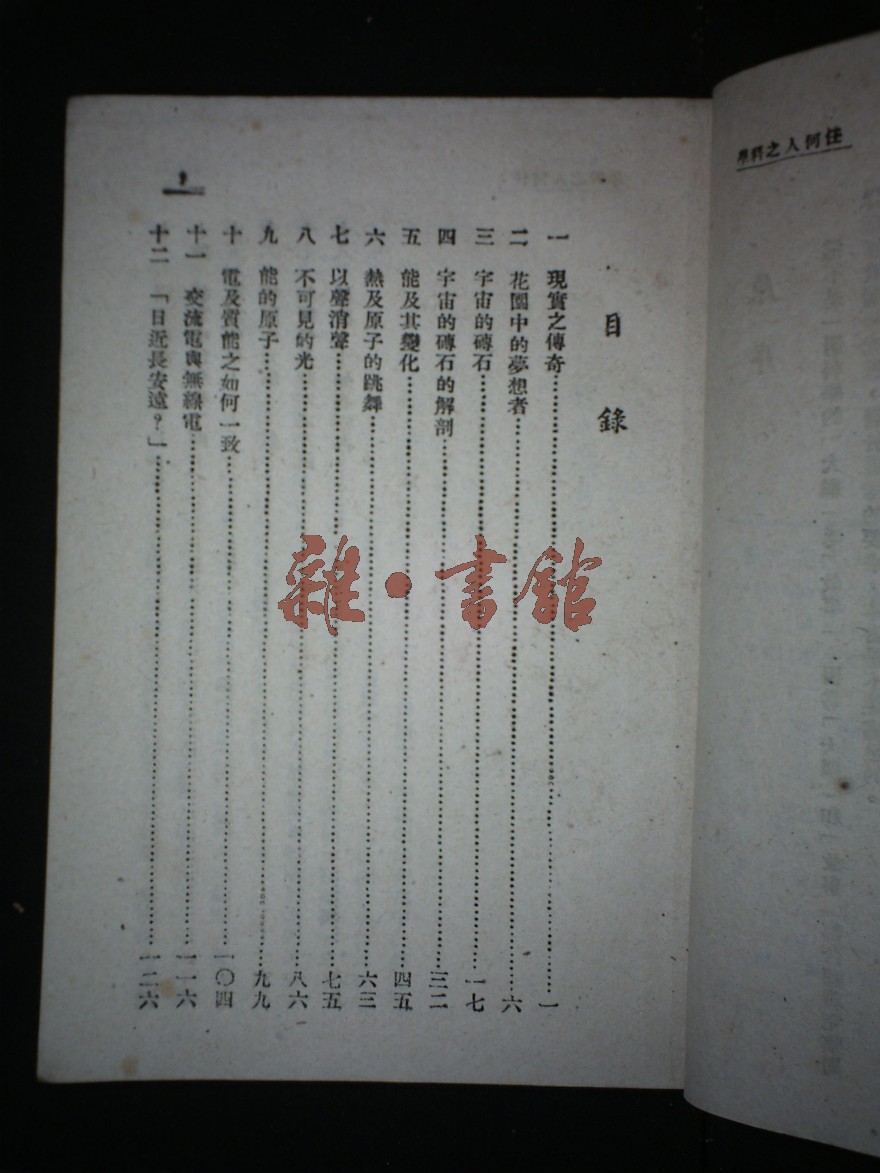 任何人之科學
目錄
一 現實之傳奇……一
二 花園中的夢想者……六
三 宇宙的磚石……一七
四 宇宙的磚石的解剖……三二
五 能及其變化……四五
六 熱及原子的跳舞……六三
七 以聲消聲……七五
八 不可見的光……八六
九 能的原子……九九
十 電及質能之如何一致……一〇四
十一 交流電與無線電……一一六
十二 「日近長安遠？」……一二六
雜·書館